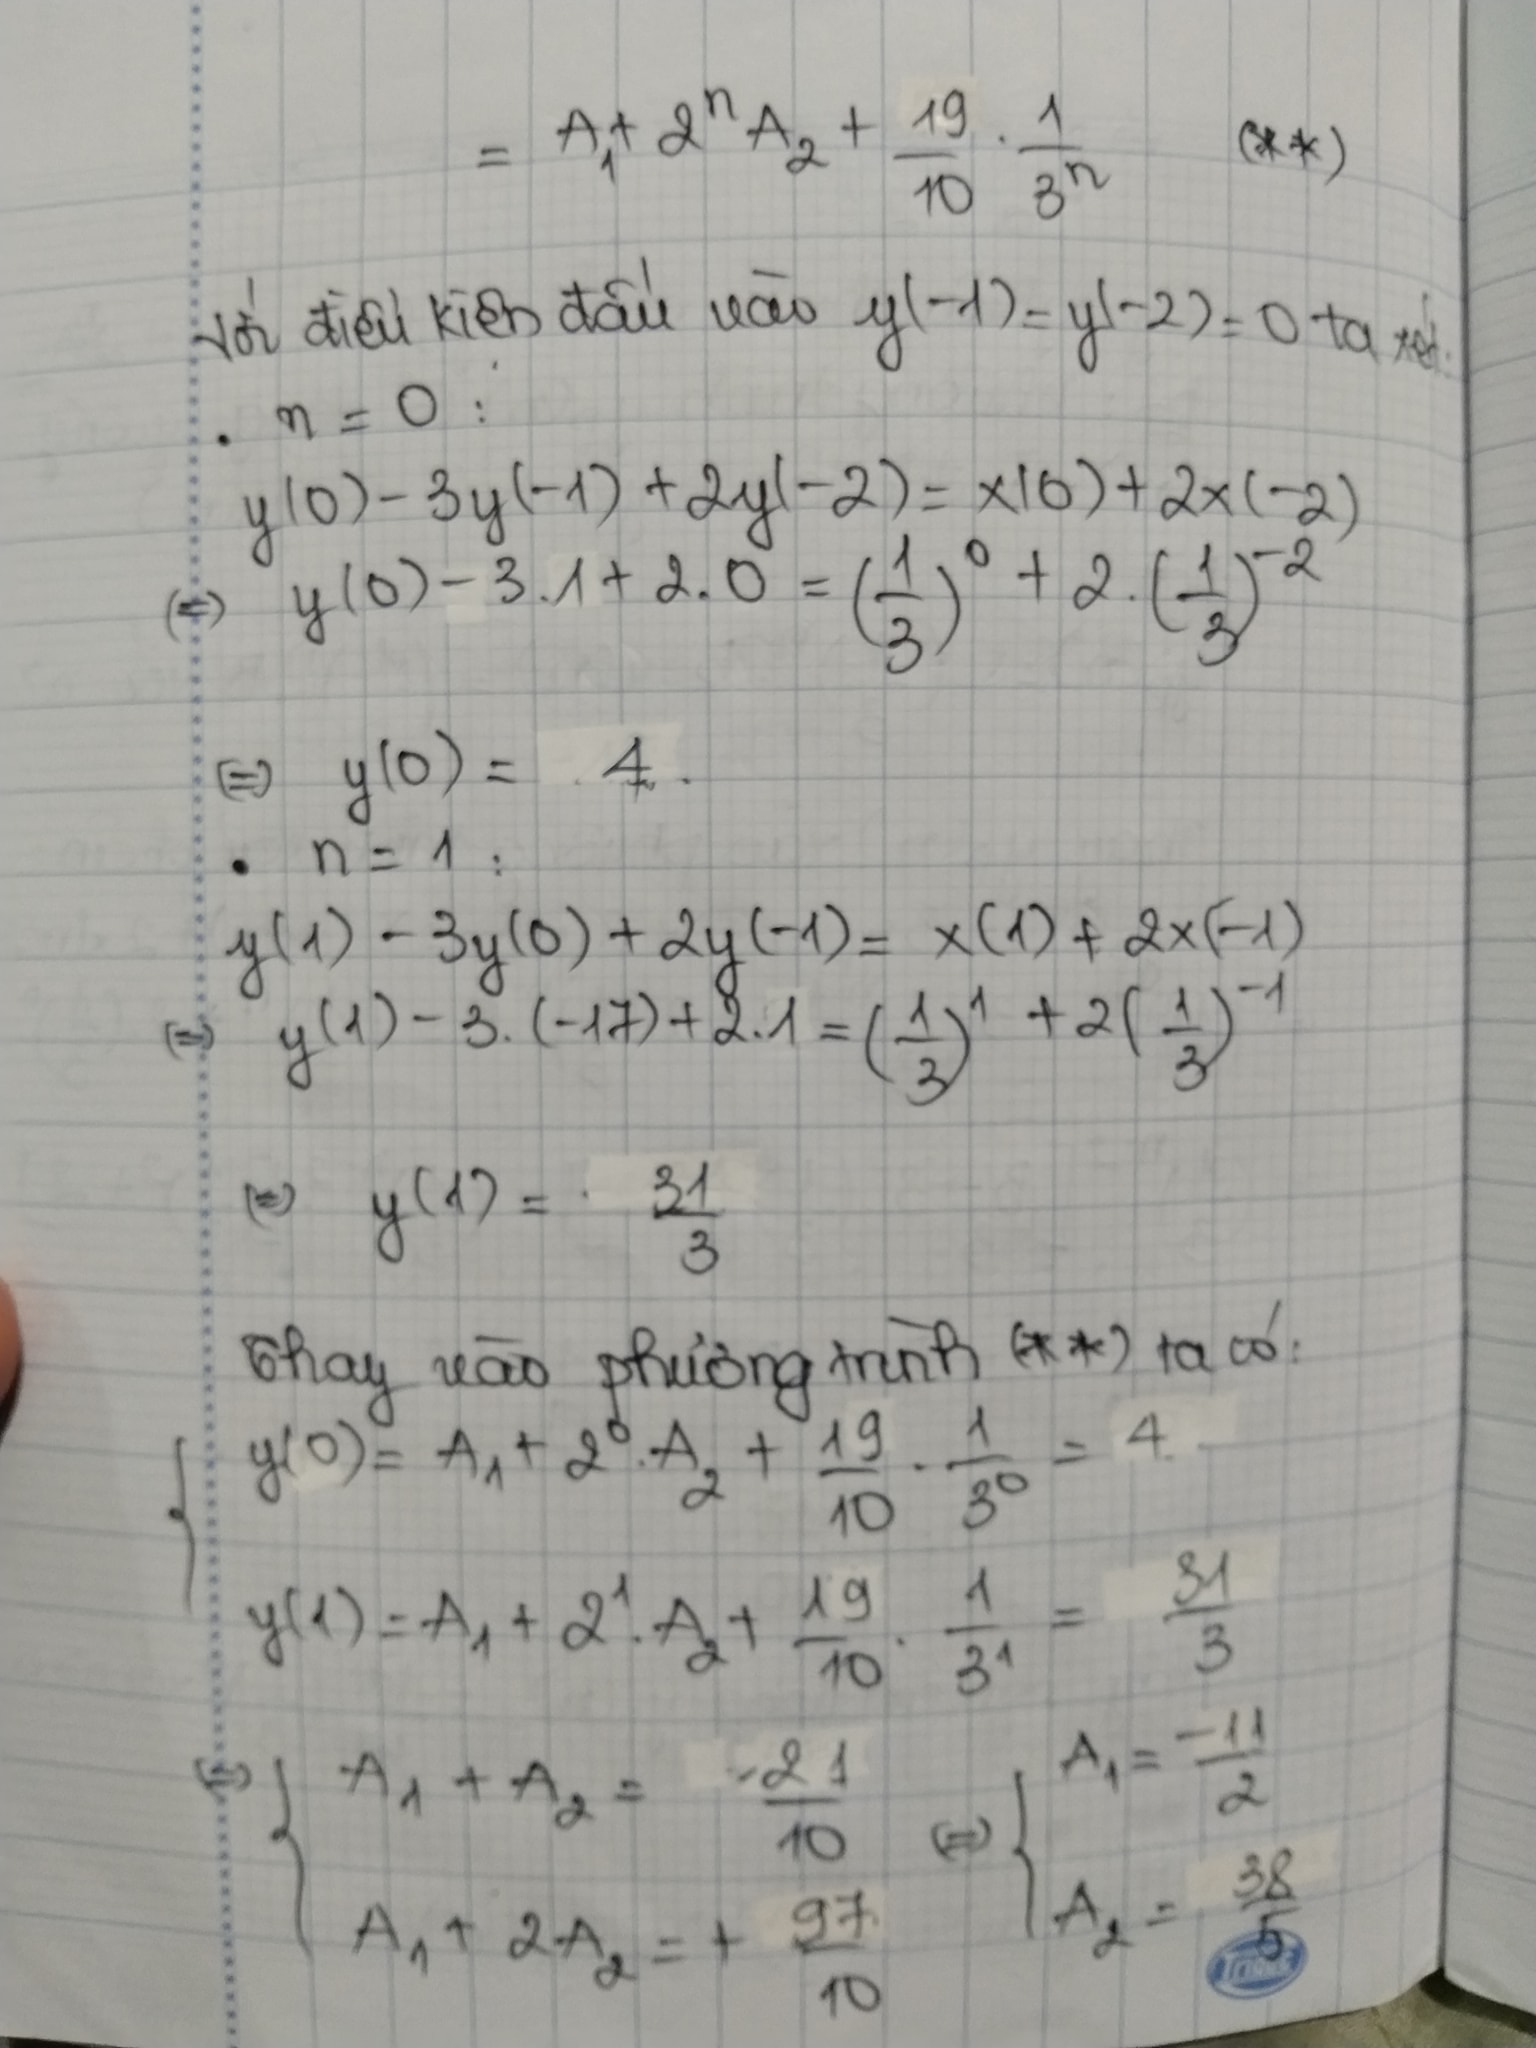 = A₁ + 2ⁿA₂ + 19/10 · 1/3ⁿ (**)
Với điều kiện đầu vào y(-1) = y(-2) = 0 ta xét:
• n = 0 :
y(0) - 3y(-1) + 2y(-2) = x(0) + 2x(-2)
(=) y(0) - 3.1 + 2.0 = (1/3)⁰ + 2.(1/3)⁻²
(=) y(0) = 4.
• n = 1 :
y(1) - 3y(0) + 2y(-1) = x(1) + 2x(-1)
(=) y(1) - 3.(-17) + 2.1 = (1/3)¹ + 2(1/3)⁻¹
(=) y(1) = 31/3
Thay vào phương trình (**) ta có:
{ y(0) = A₁ + 2⁰.A₂ + 19/10 · 1/3⁰ = 4
y(1) = A₁ + 2¹.A₂ + 19/10 · 1/3¹ = 31/3
(=) { A₁ + A₂ = -21/10 (=) { A₁ = -11/2
A₁ + 2A₂ = + 97/10 A₂ = 38/5